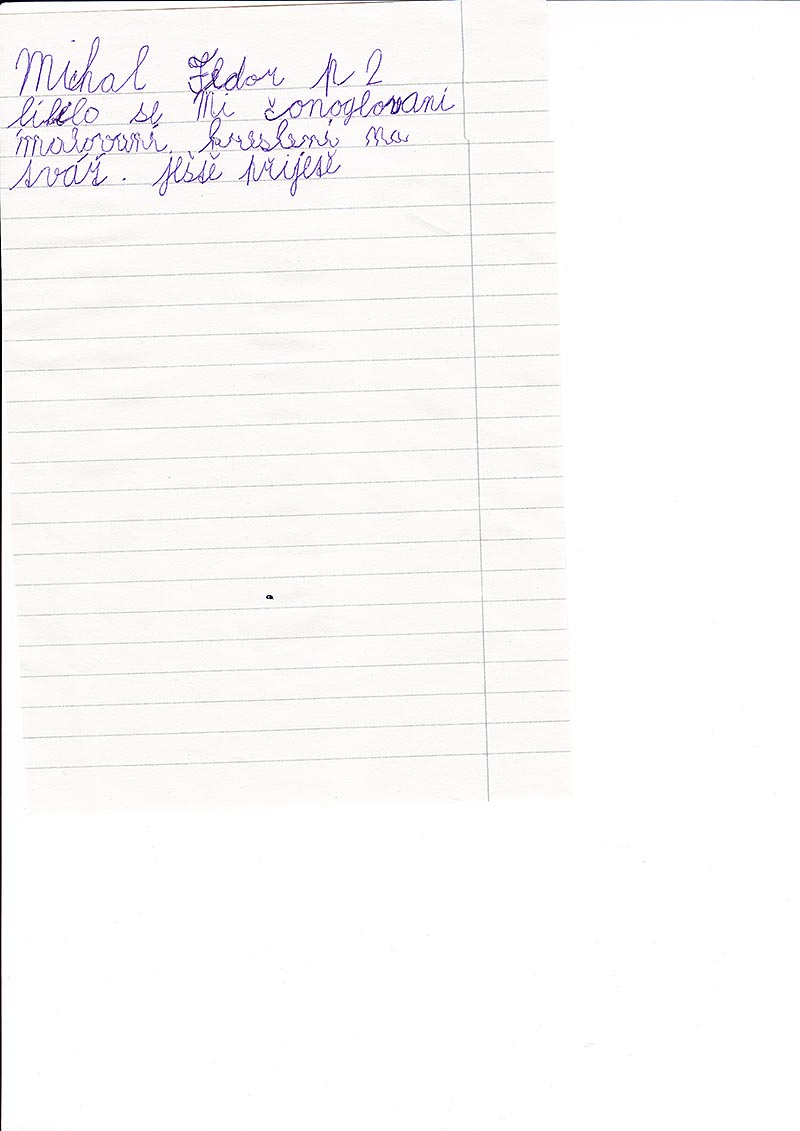 Michal Fedor p 2
líbilo se Mi čonoglovaní
malovaní. kreslení na
tvář. ještě přijetě